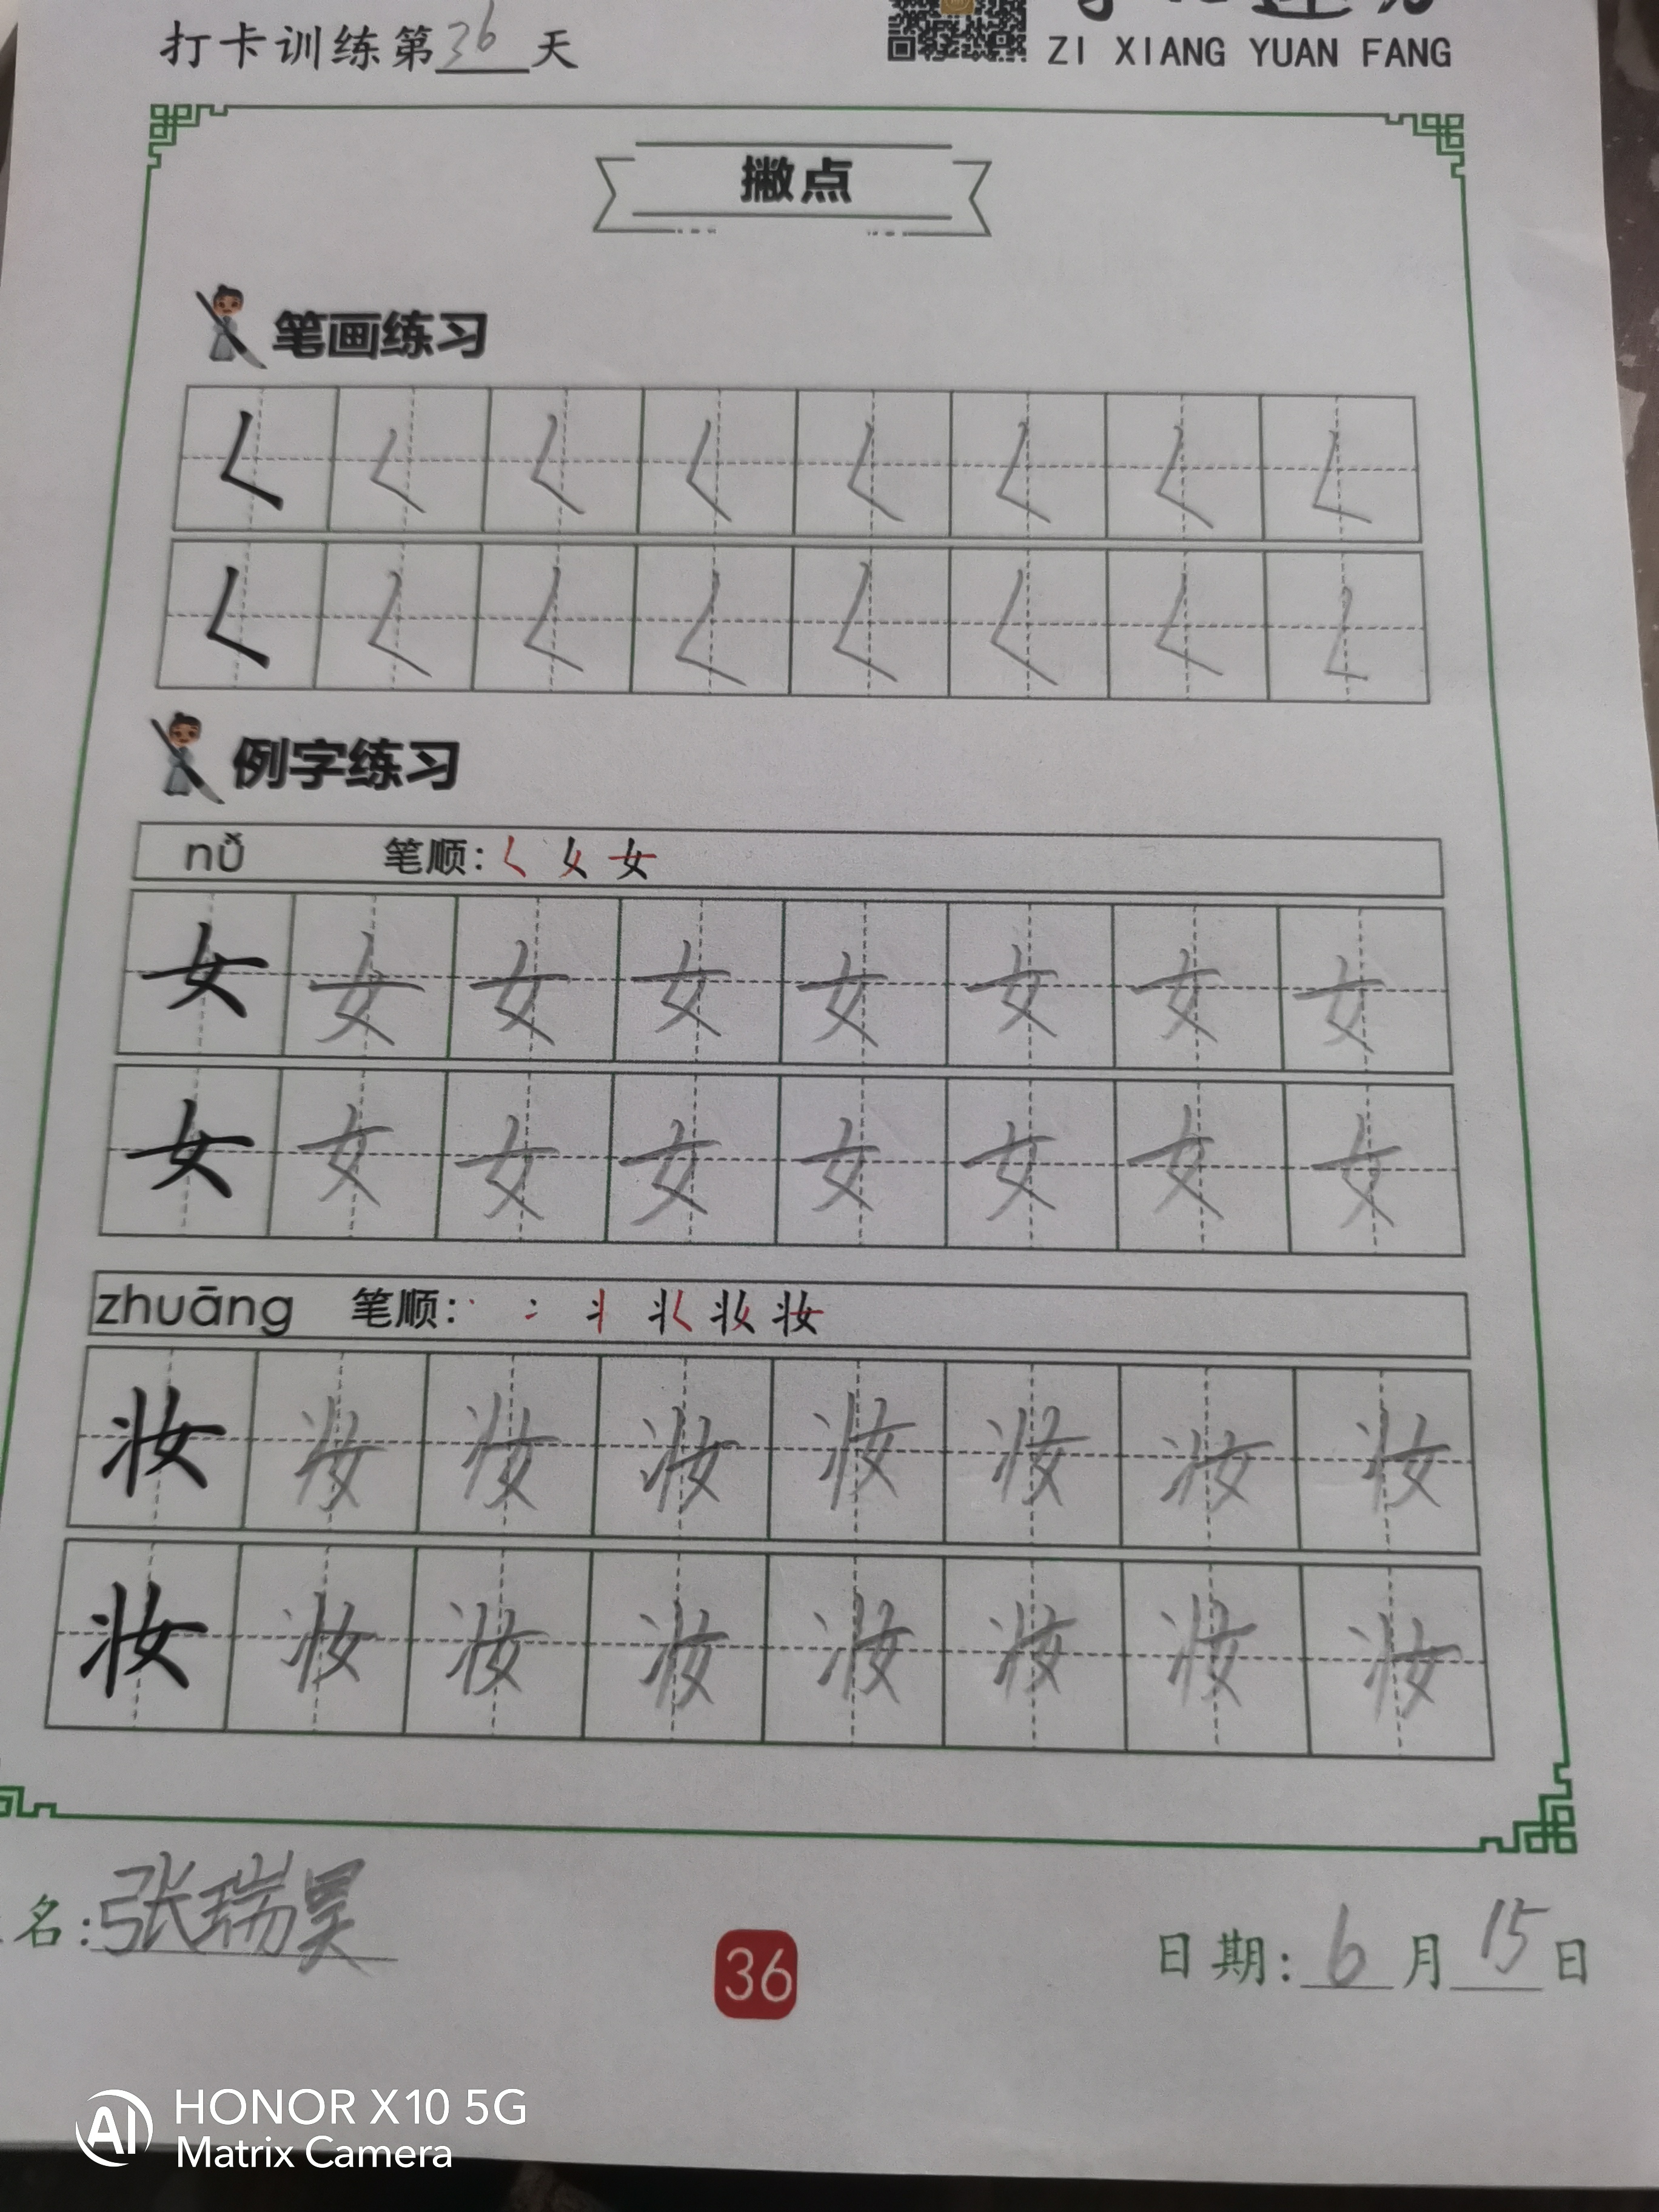 打卡训练第36天
ZI XIANG YUAN FANG
撇点
笔画练习
例字练习
nǚ 笔顺: 女
女 女 女 女 女 女 女 女
女 女 女 女 女 女 女 女
zhuāng 笔顺: 妆
妆 妆 妆 妆 妆 妆 妆 妆
妆 妆 妆 妆 妆 妆 妆 妆
名:张瑞昊
36
日期:6月15日
AI HONOR X10 5G
Matrix Camera